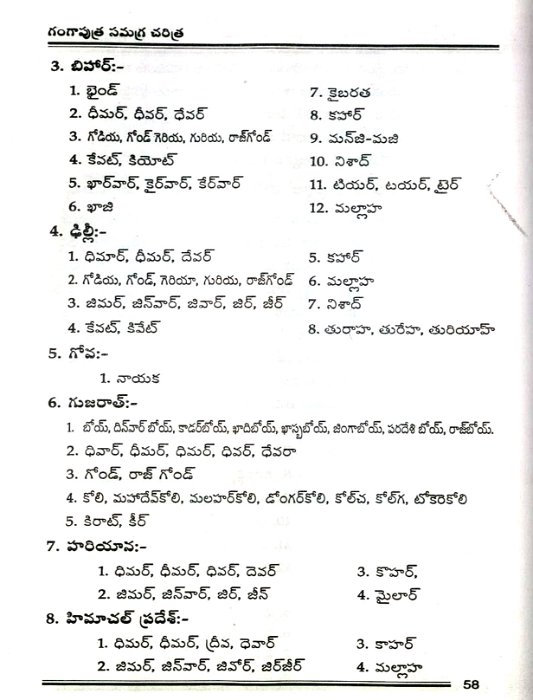 గంగాపుత్ర సమగ్ర చరిత్ర
3. బిహార్:-
1. భైండ్ 7. కైబరత
2. ధీమర్, ధీవర్, ధేవర్ 8. కహార్
3. గోడియ, గోండ్ గెరియ, గురియ, రాజ్‌గోండ్ 9. మన్‌జి-మజి
4. కేవట్, కియోట్ 10. నిశాద్
5. ఖార్‌వార్, కైర్‌వార్, కేర్‌వార్ 11. టియర్, టయర్, టైర్
6. ఖాజి 12. మల్లాహ
4. ఢిల్లీ:-
1. ధిమార్, ధీమర్, దేవర్ 5. కహార్
2. గోడియ, గోండ్, గెరియా, గురియ, రాజ్‌గోండ్ 6. మల్లాహ
3. జిమర్, జిన్‌వార్, జివార్, జిర్, జీర్ 7. నిశాద్
4. కేవట్, కివేట్ 8. తురాహ, తురేహ, తురియాహ్
5. గోవ:-
1. నాయక
6. గుజరాత్:-
1. బోయ్, దిన్‌వార్ బోయ్, కాడర్‌బోయ్, ఖాదిబోయ్, ఖాస్పబోయ్, జింగాబోయ్, పరదేశి బోయ్, రాజ్‌బోయ్.
2. ధివార్, ధీమర్, ధిమర్, ధివర్, ధేవరా
3. గోండ్, రాజ్ గోండ్
4. కోలి, మహాదేవ్‌కోలి, మలహర్‌కోలి, డోంగర్‌కోలి, కోల్‌చ, కోల్‌గ, టోకరెకోలి
5. కిరాట్, కీర్
7. హరియాన:-
1. ధిమర్, ధీమర్, ధివర్, దెవర్ 3. కౌహర్,
2. జిమర్, జిన్‌వార్, జిర్, జీన్ 4. మైలార్
8. హిమాచల్ ప్రదేశ్:-
1. ధిమర్, ధీమర్, ద్రీవ, ధెవార్ 3. కాహర్
2. జిమర్, జిన్‌వార్, జివోర్, జిర్‌జీర్ 4. మల్లాహ
58